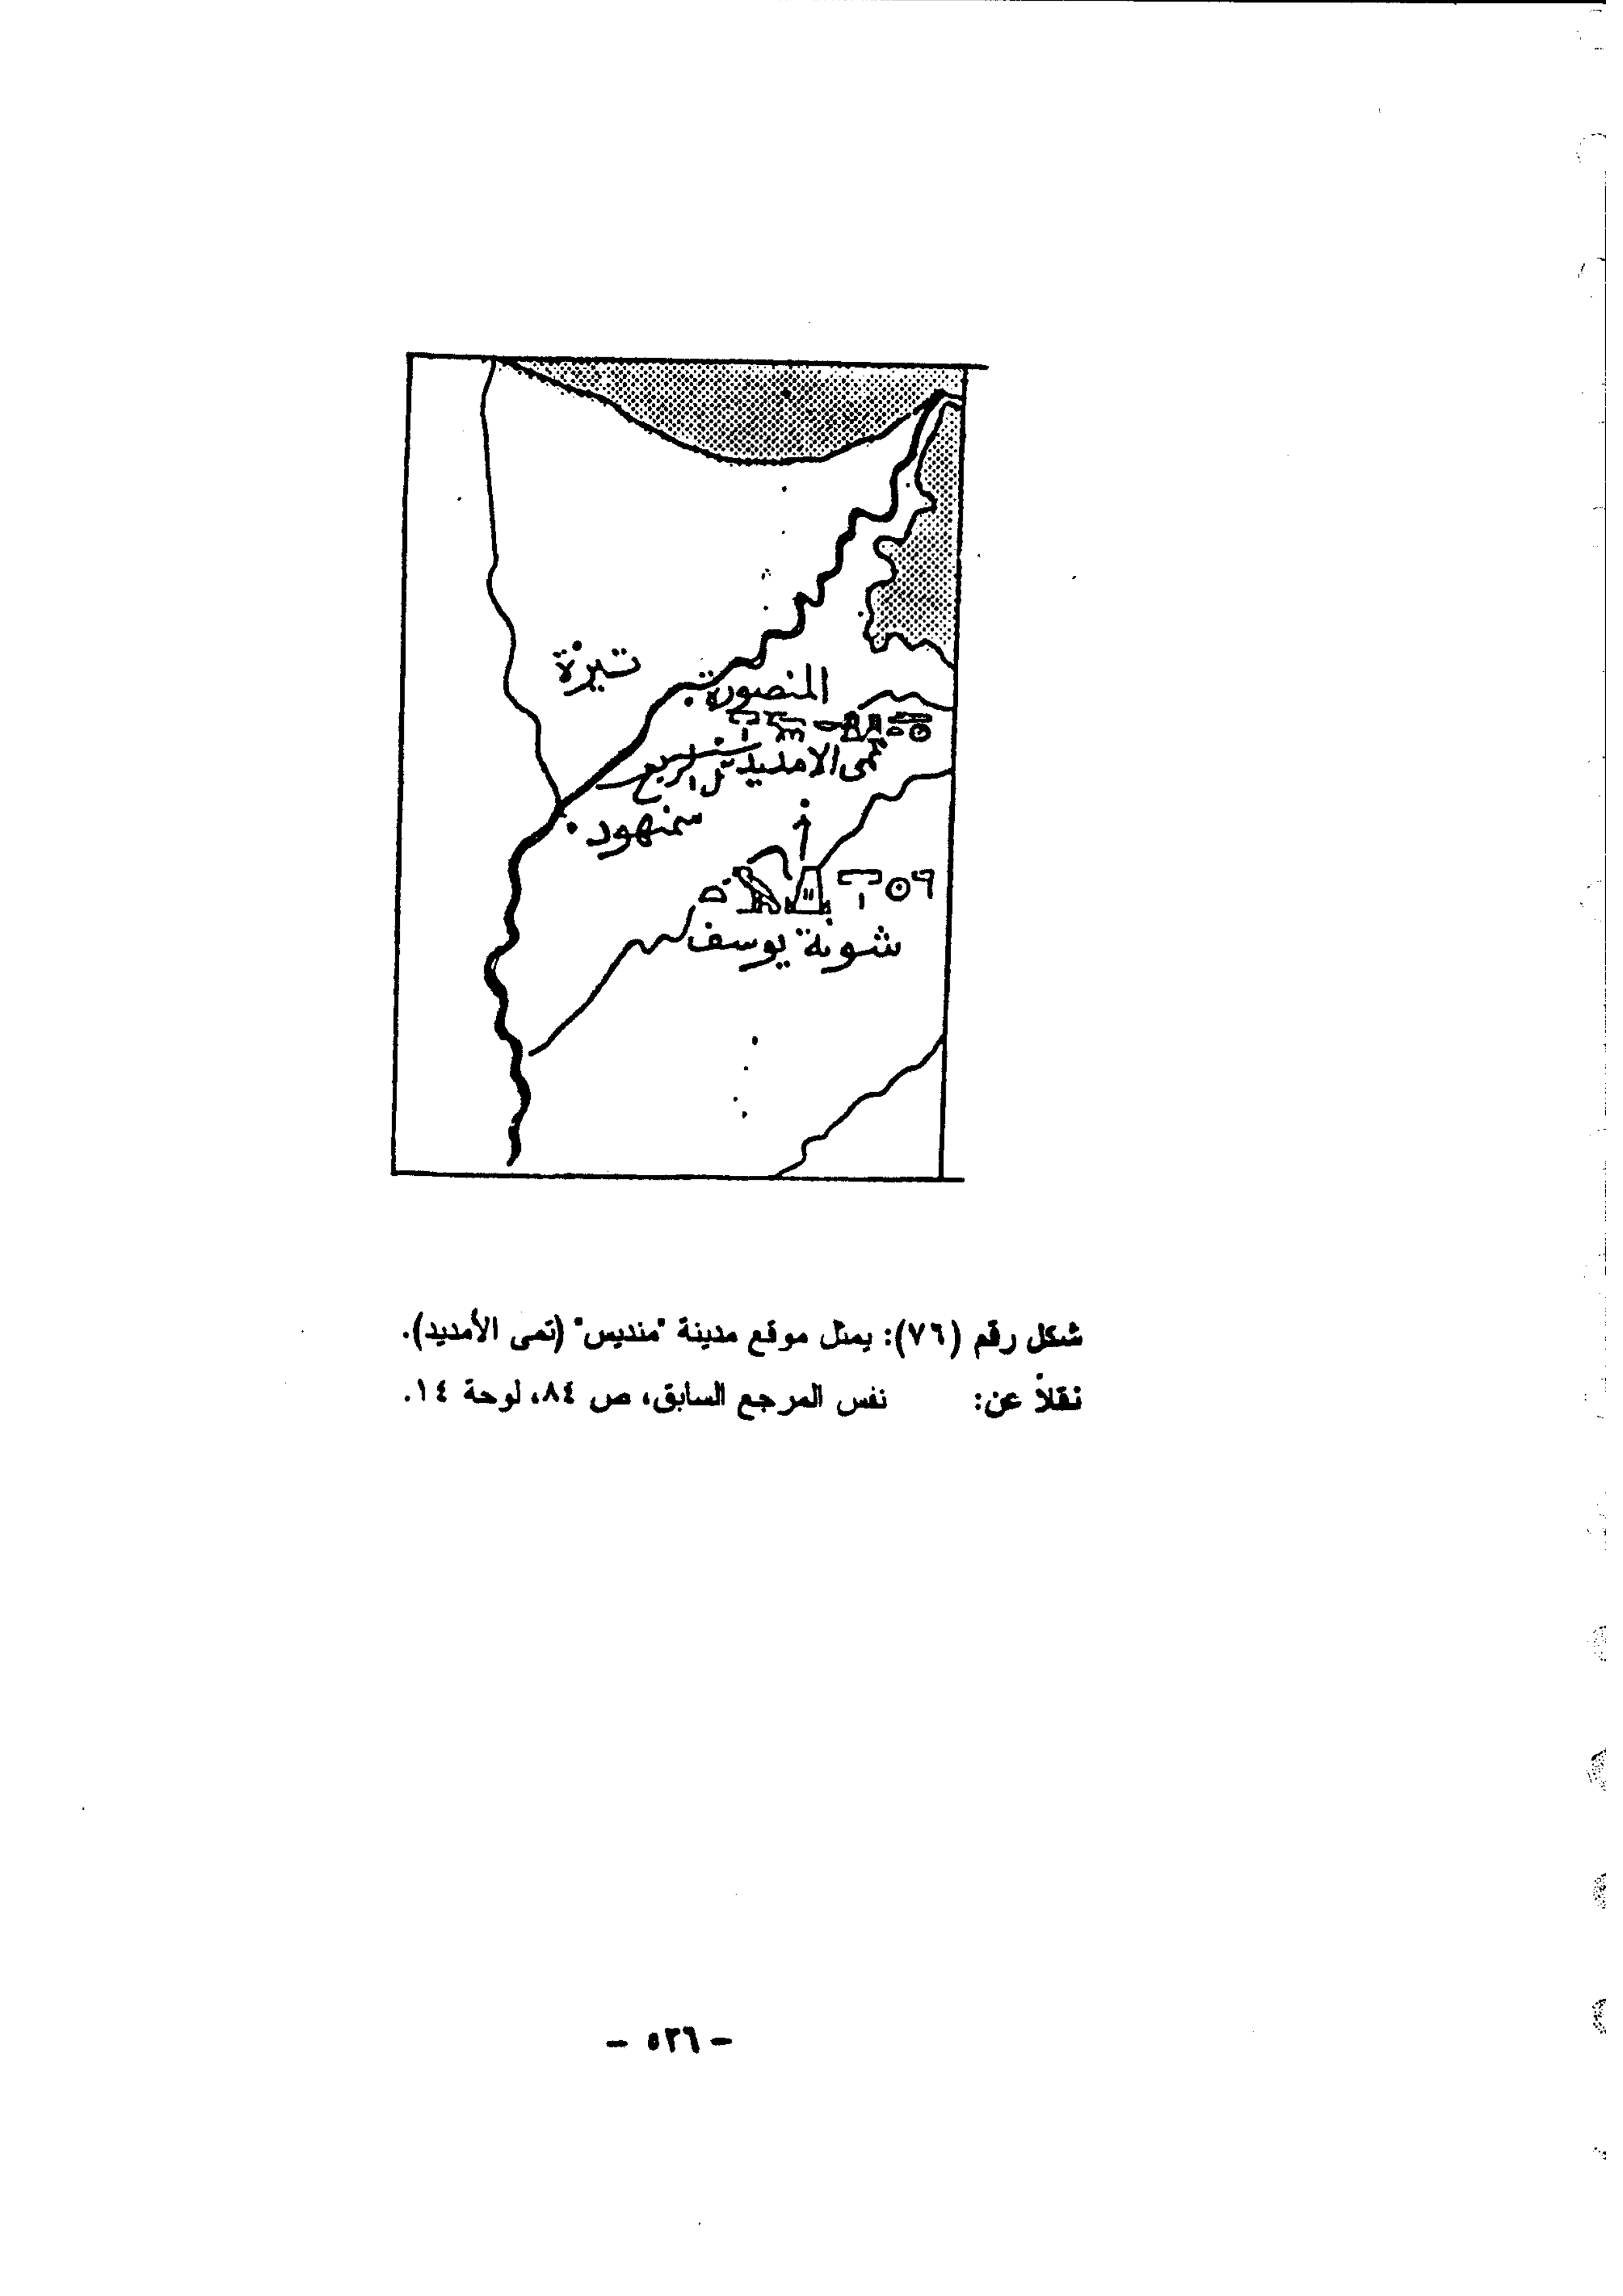 تيرة
المنصورة
تمى الامديد تل الربع
سمنهود
شونة يوسف
شكل رقم (٧٦): يمثل موقع مدينة "منديس" (تمى الأمديد).
نقلاً عن: نفس المرجع السابق، ص ٨٤، لوحة ١٤.
- ٥٢٦ -